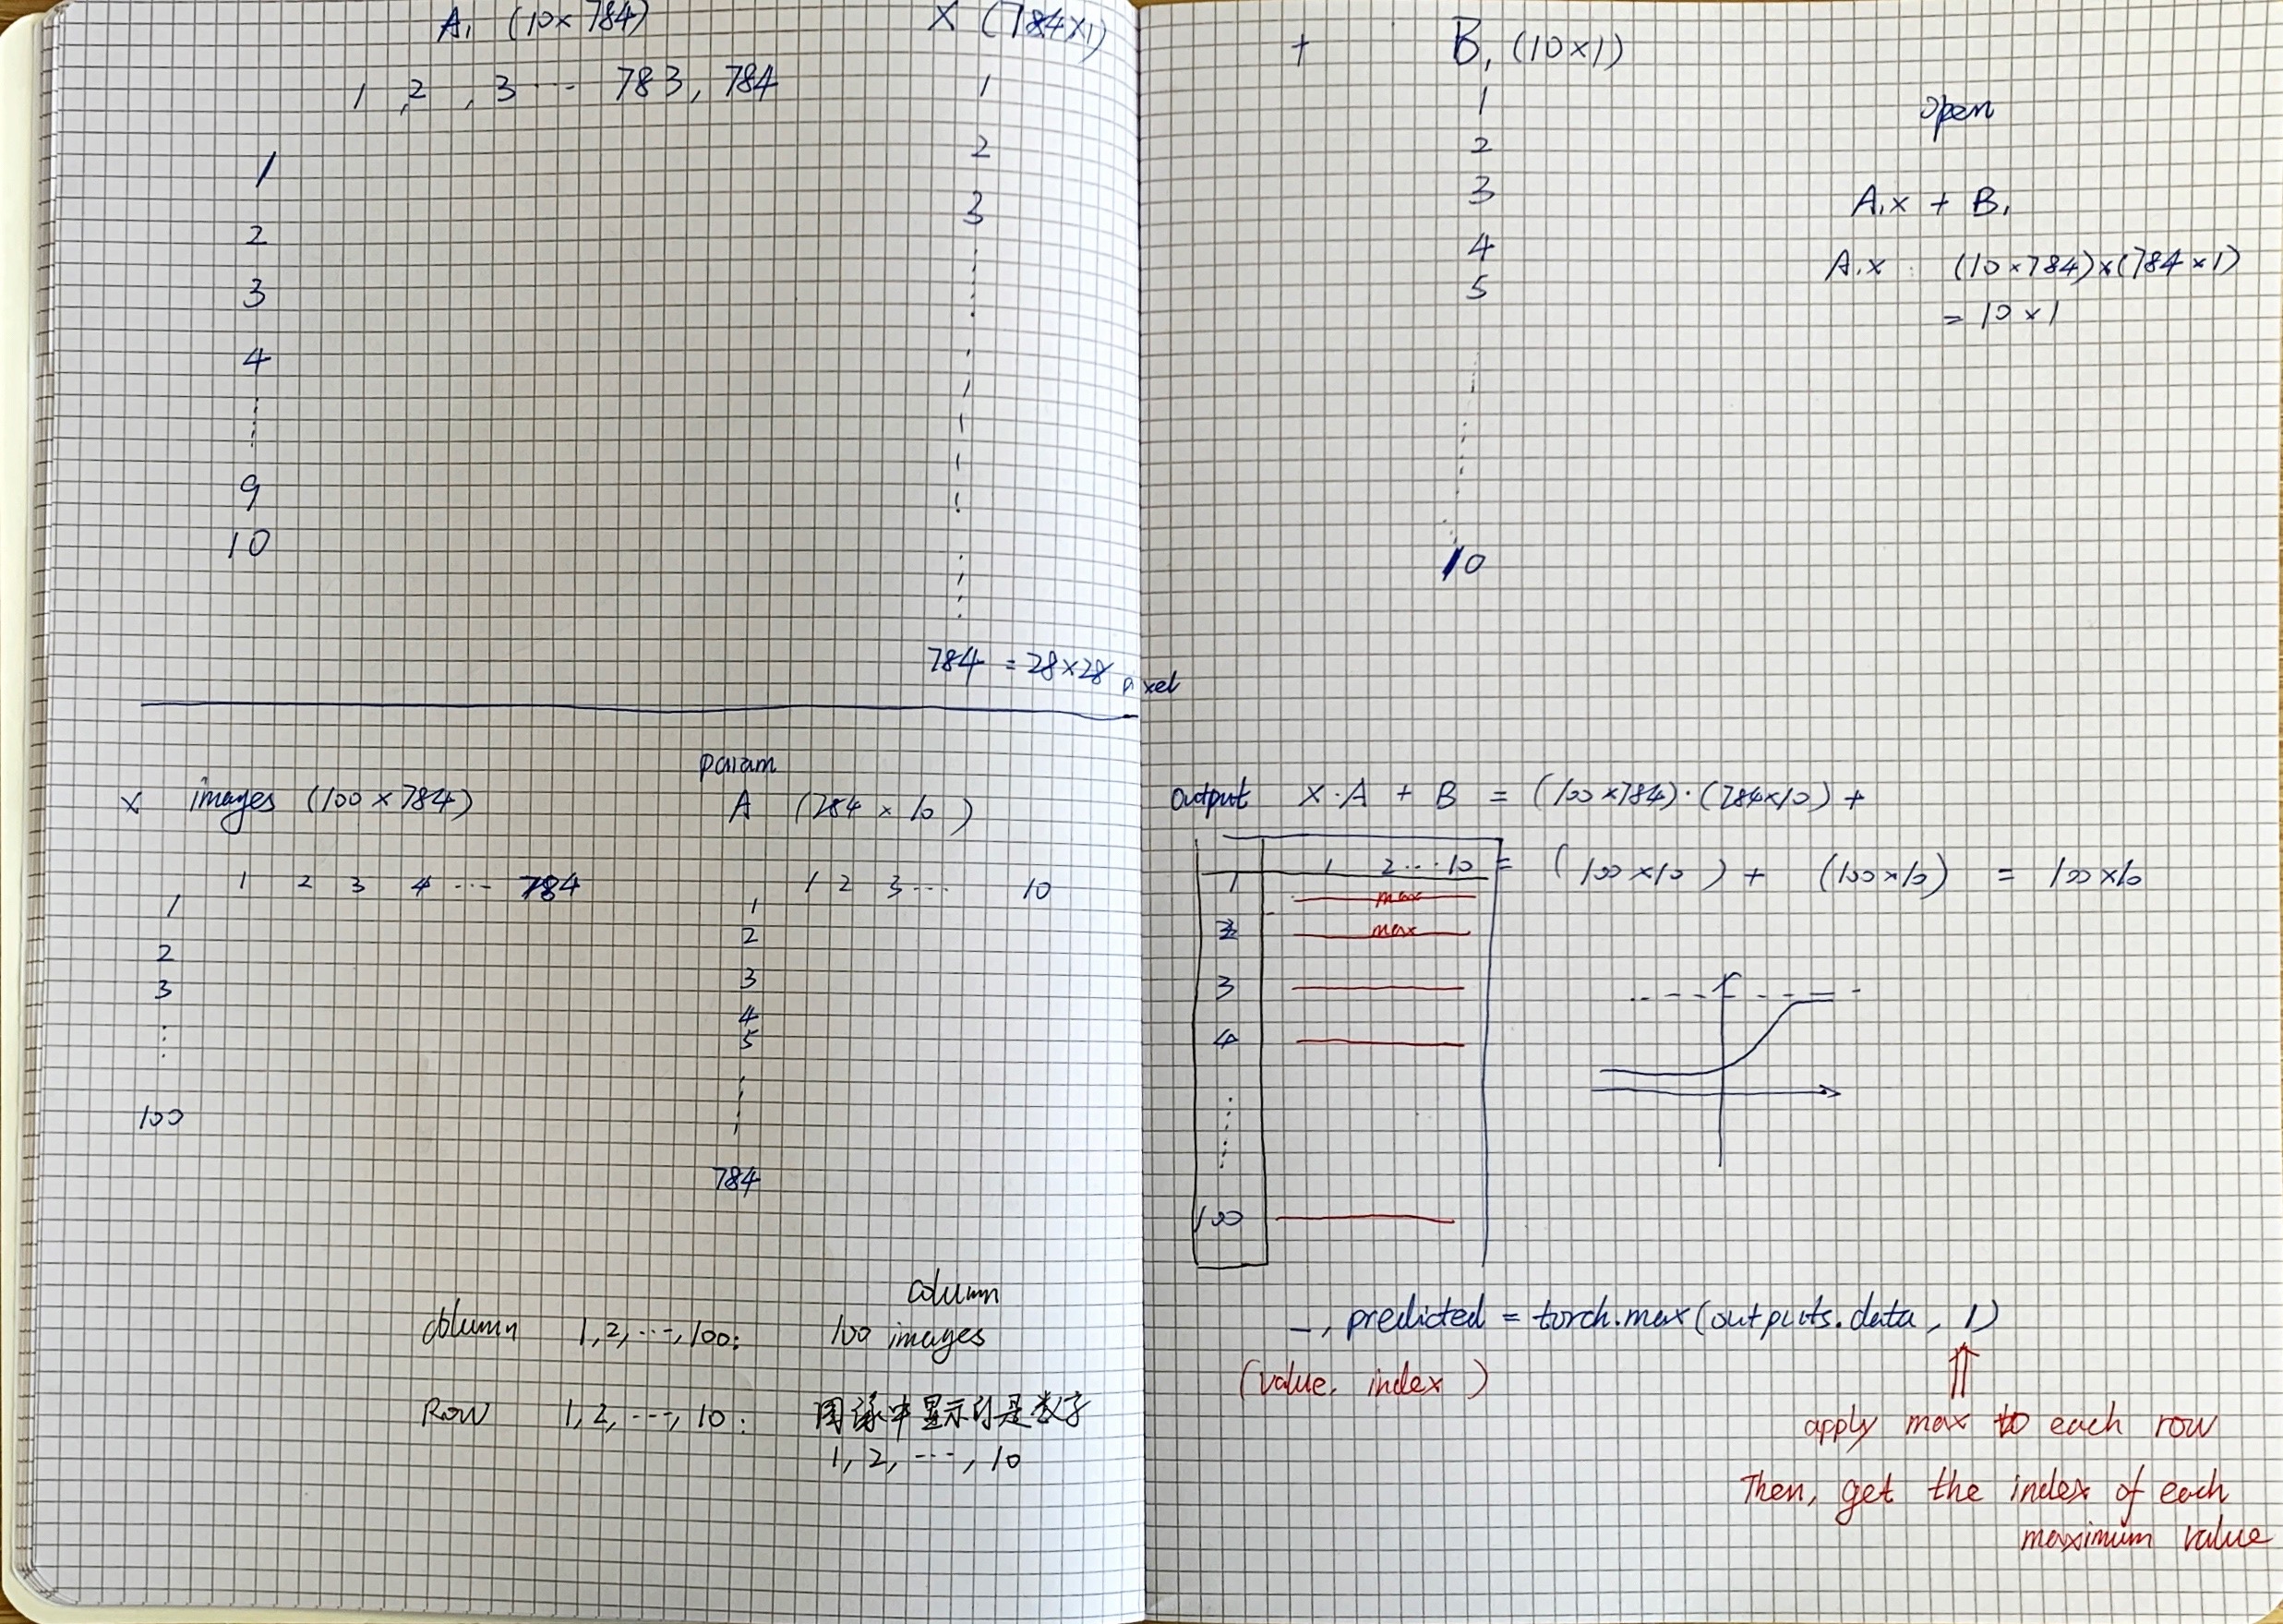 A₁ (10×784)
X (784×1)
1 , 2 , 3 ... 783, 784
1
2
3
4
9
10
1
2
3
784 = 28×28 pixel
+ B₁ (10×1)
1
2
3
4
5
10
open
A₁x + B₁
A₁x : (10×784)×(784×1)
= 10×1
x images (100×784)
1 2 3 4 ... 784
1
2
3
100
param
A (784 × 10)
1 2 3 ... 10
1
2
3
4
5
784
column
column 1,2,...,100: 100 images
Row 1,2,...,10: 图像中显示的是数字
1, 2, ..., 10
output X·A + B = (100×784)·(784×10) +
= (100×10) + (100×10) = 100×10
1 2 ... 10
1 max
2 max
3
4
100
_, predicted = torch.max(outputs.data, 1)
(value, index)
apply max to each row
Then, get the index of each
maximum value